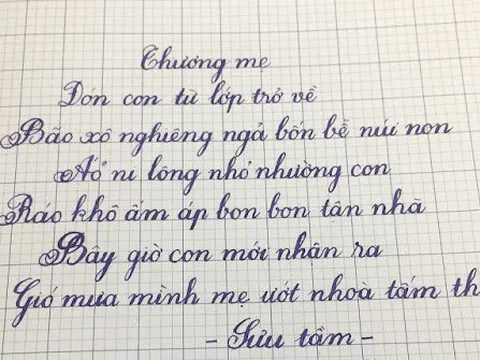 Thương mẹ
Đón con từ lớp trở về
Bão xô nghiêng ngả bốn bề núi non
Áo ni lông nhỏ nhường con
Ráo khô ấm áp bon bon tận nhà
Bây giờ con mới nhận ra
Gió mưa mình mẹ ướt nhoà tấm th
- Sưu tầm -